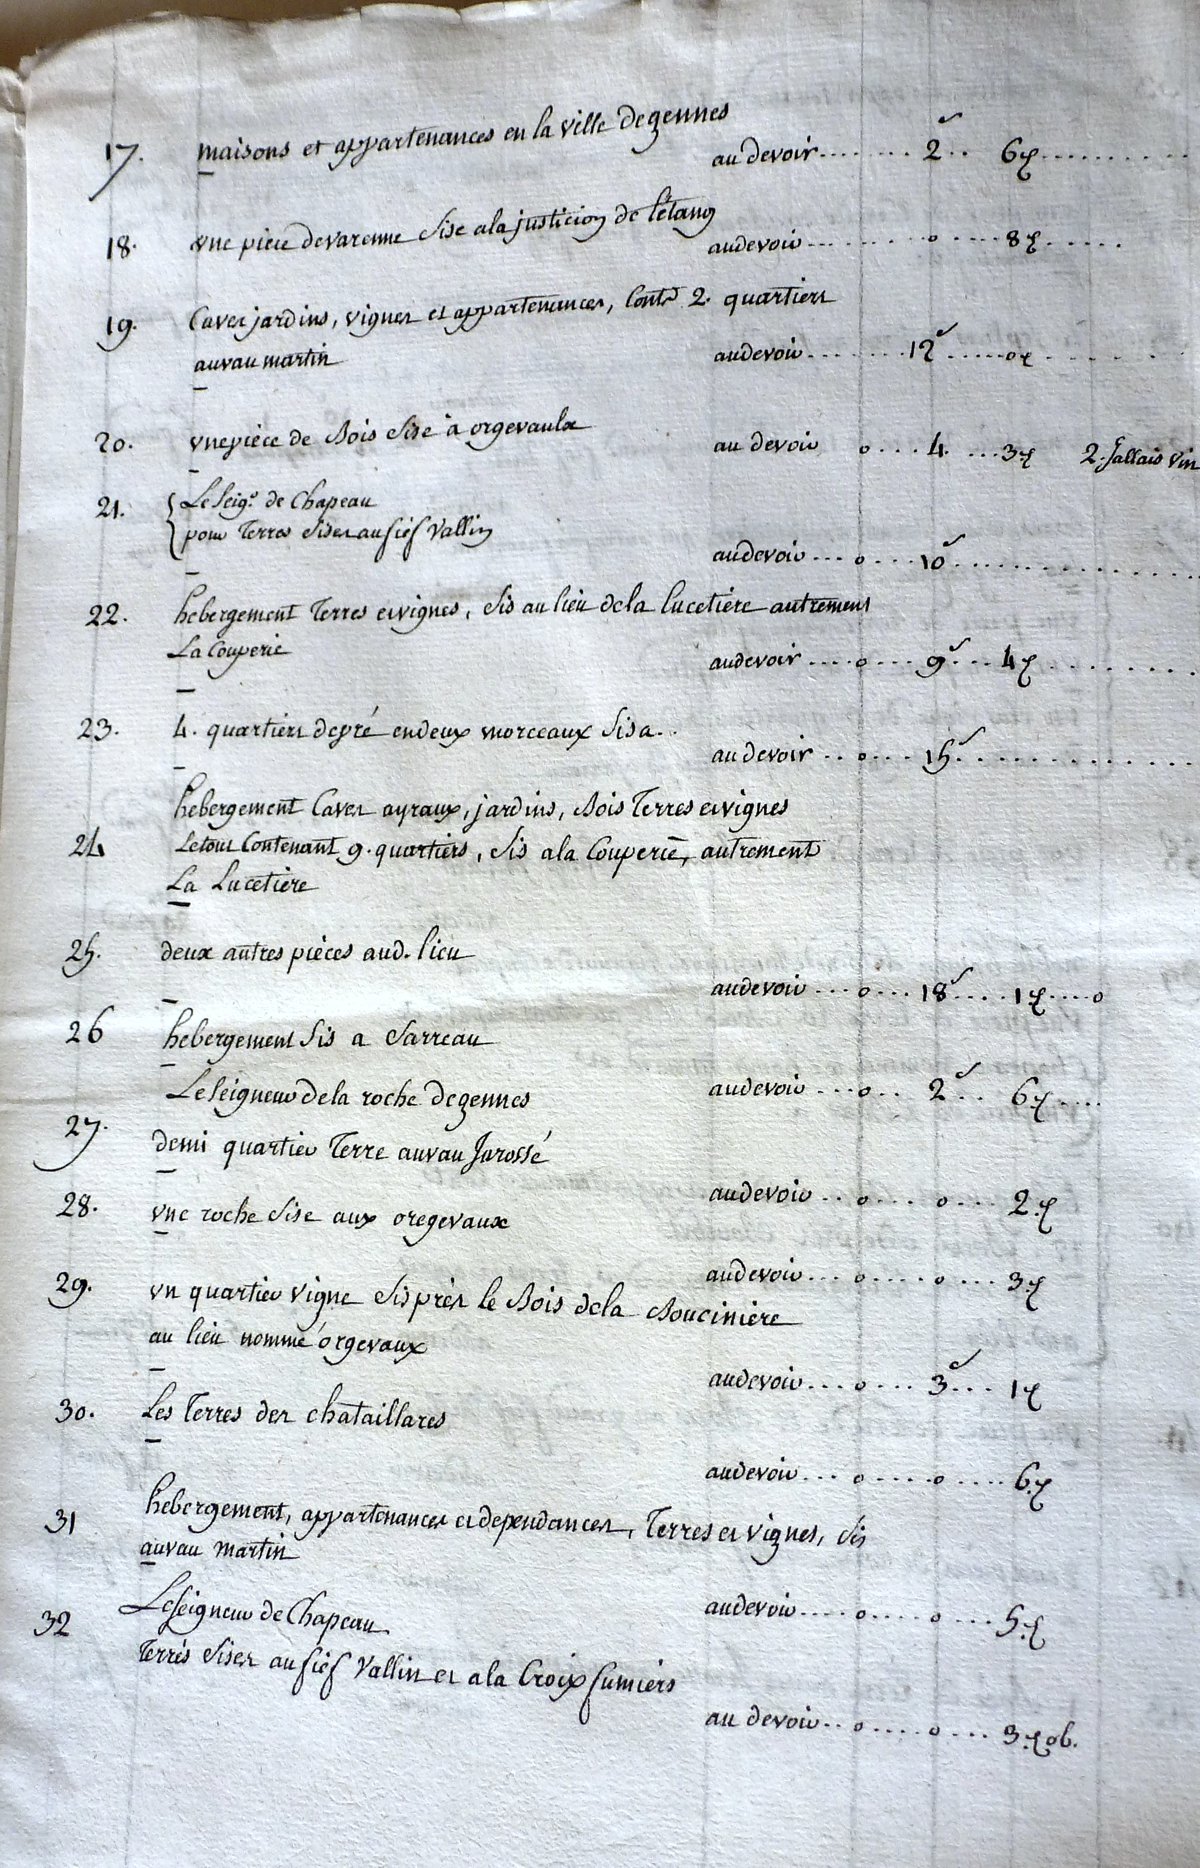 17. maisons et appartenances en la ville de gennes
au devoir ........ 2ˢ .. 6₰ ..........
18. une piece de varenne sise a la justicion de l'étang
au devoir ........ o .... 8₰ ......
19. Caves jardins, vignes et appartenances, Contt 2. quartiers
au vau martin
au devoir ....... 12ˢ ...... o₰ ..........
20. une piéce de Bois sise à orgevaulx
au devoir o ... 4. ... 3₰ 2. Jallais vin
21. Le seigr de Chapeau
pour Terres sises au fief Vallin
au devoir ... o ... 10ˢ ..............
22. hebergement Terres et vignes, sis au lieu de la Lucetiére autrement
La Couperie
au devoir .... o .... 9ˢ ... 4₰ ........
23. 4. quartiers de pré en deux morceaux sis a ..
au devoir .. o ... 15ˢ ..............
hebergement Caves ayraux, jardins, Bois Terres et vignes
24 Le tout Contenant 9. quartiers, sis a la Couperie, autrement
La Lucetiére
25. deux autres piéces aud. lieu
au devoir ... o ... 18ˢ .... 1₰ .... o
26 hebergement sis a Sarreau
au devoir ... o .. 2ˢ .. 6₰ ....
Le seigneur de la roche de gennes
27. demi quartier Terre au vau Jarossé
au devoir .. o .... o .... 2.₰
28. une roche sise aux oregevaux
au devoir ... o .... o ... 3.₰
29. un quartier vigne sis prés le Bois de la Bouciniere
au lieu nommé orgevaux
au devoir ... o .... 3ˢ ... 1₰
30. Les Terres des chataillares
au devoir ... o .... o .... 6.₰
31 hebergement, appartenances et dependances, Terres et vignes, sis
au vau martin
au devoir .... o .... o .... 5.₰
32 Le seigneur de Chapeau
Terrés sises au fief Vallin et a la Croix fumiers
au devoir .. o .... o ... 3.₰ ob.